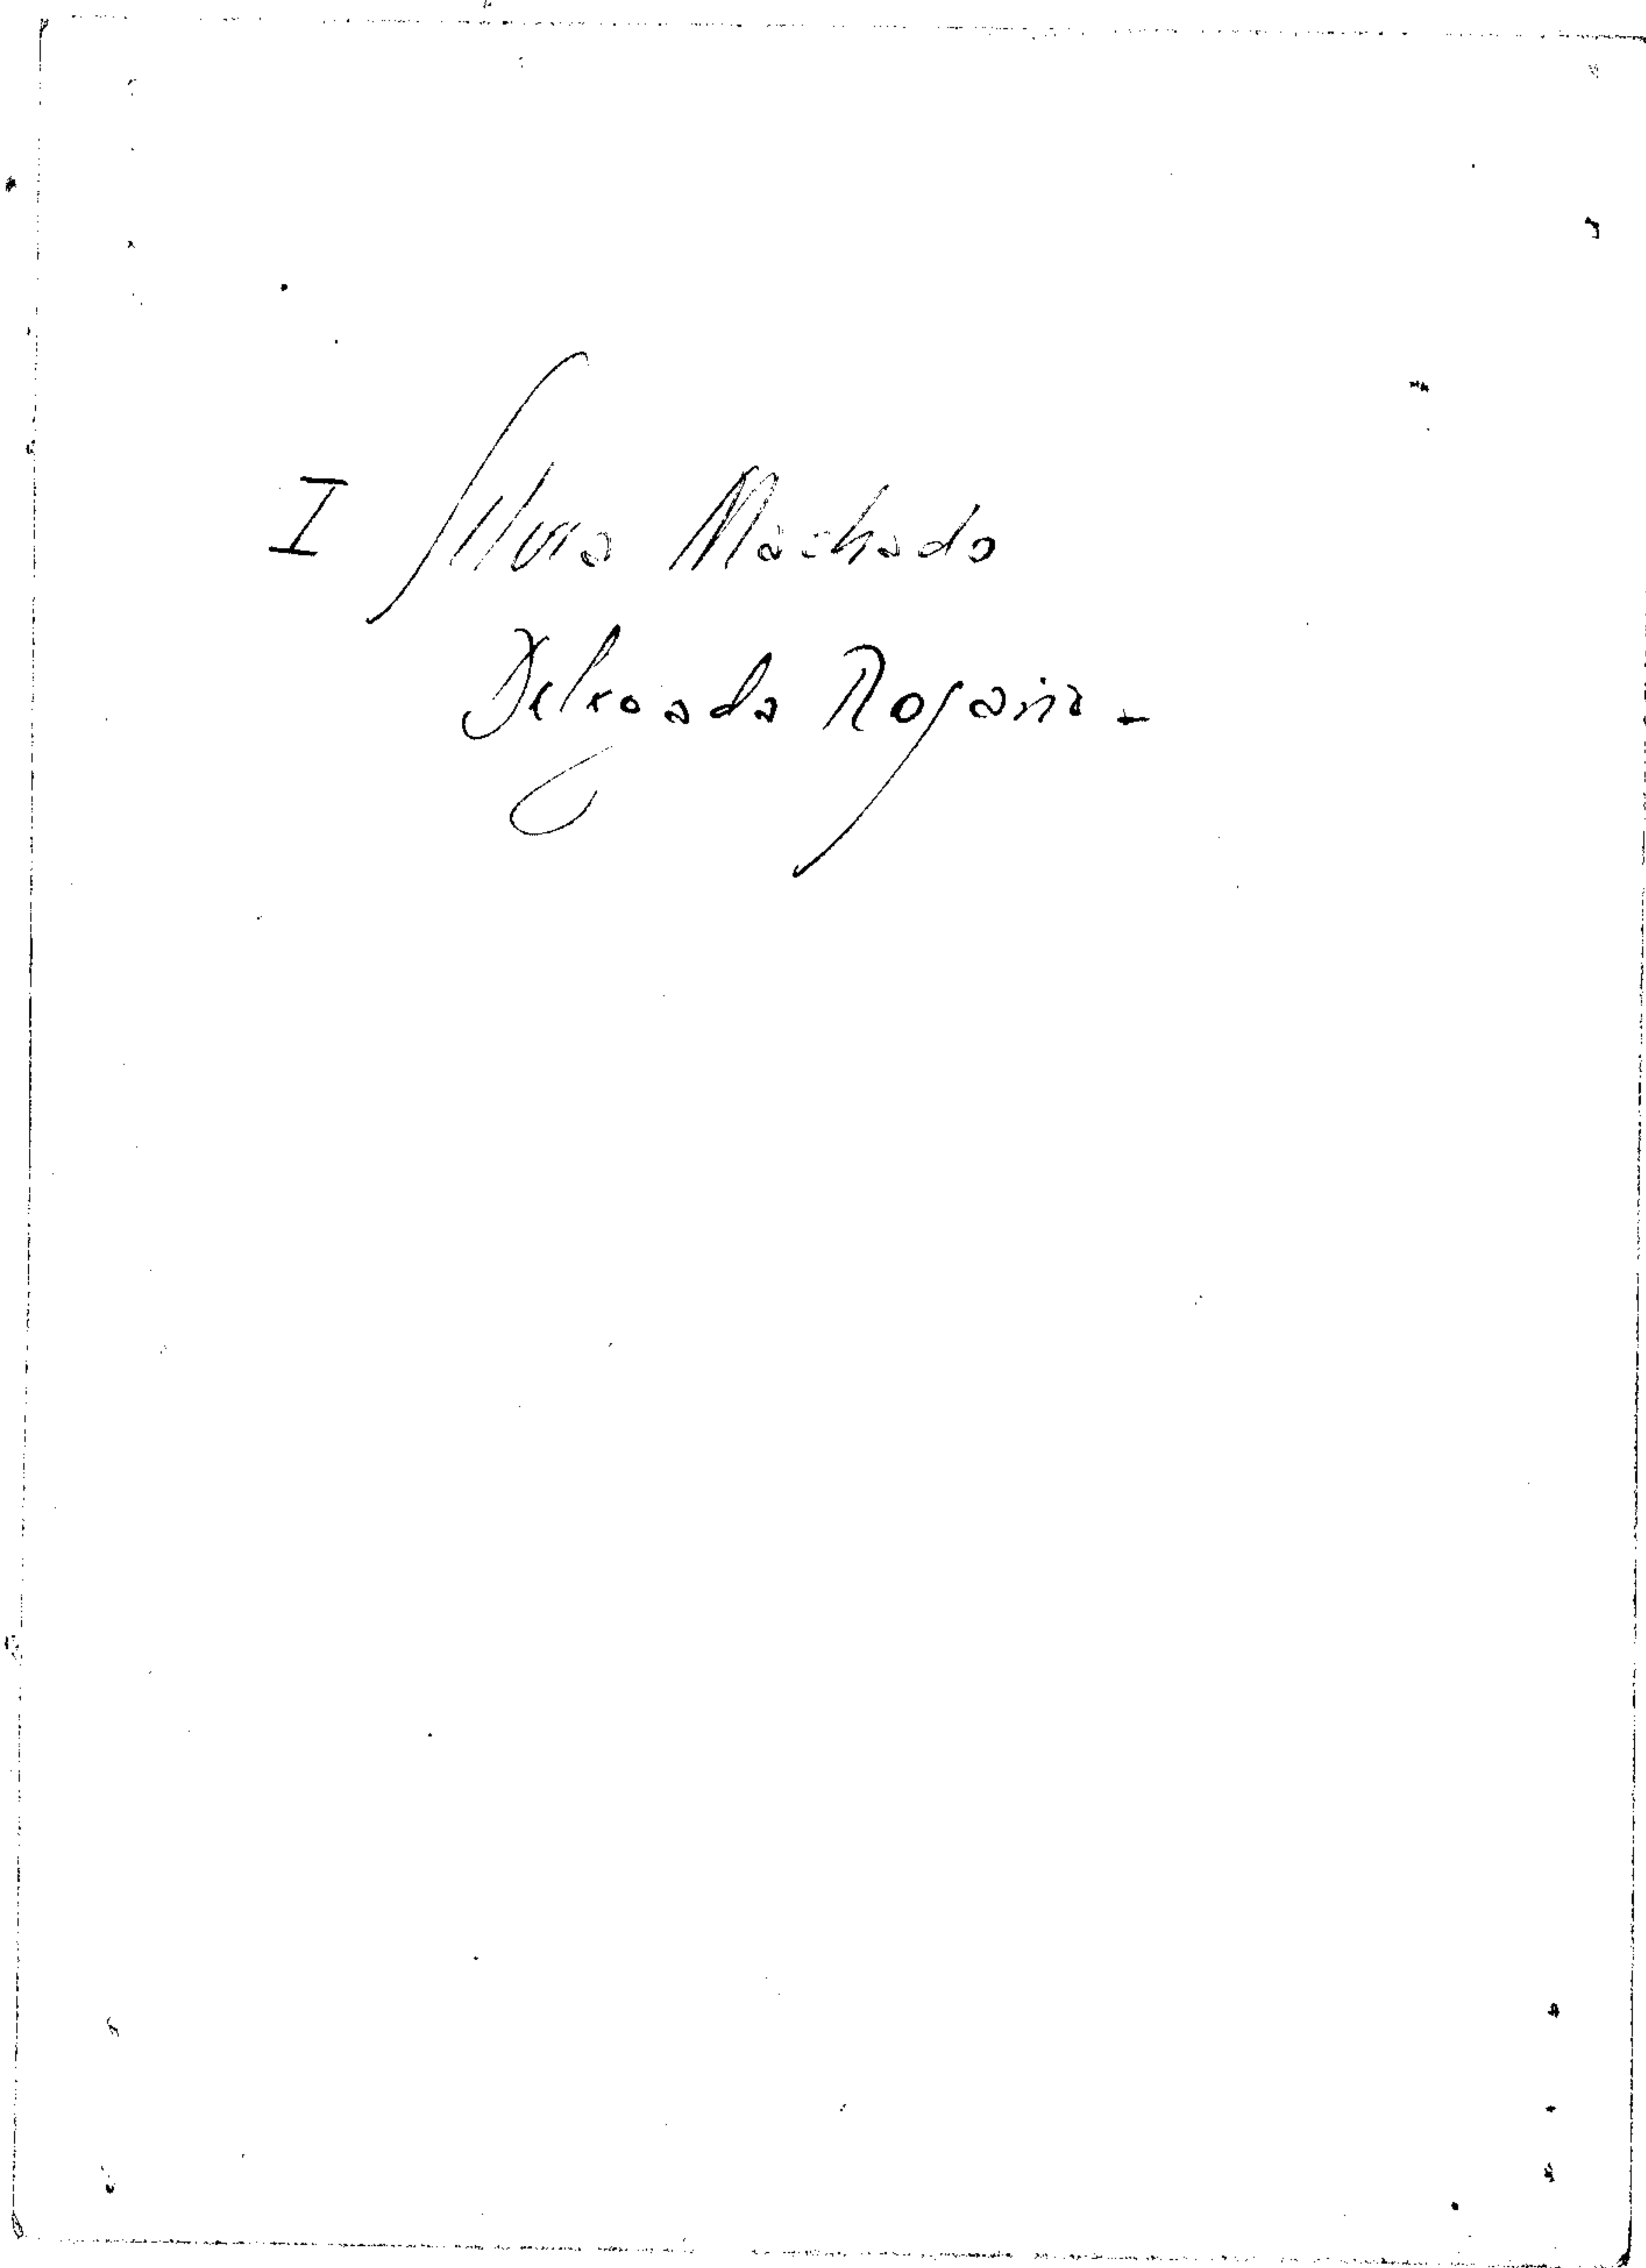 I Silvia Machado
Delegada Rosario -